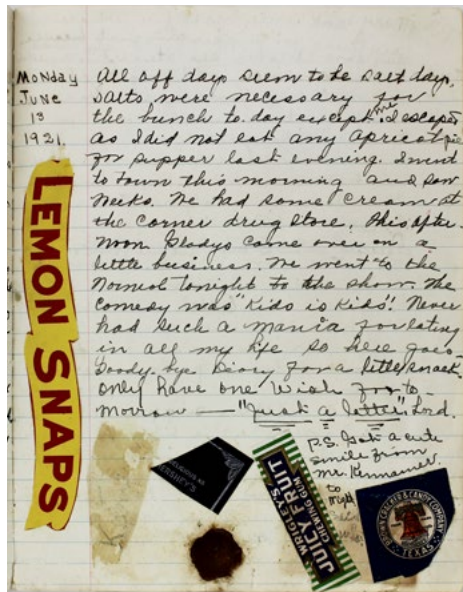 Monday
June
13
1921
All off days seem to be salt days,
salts were necessary for
the bunch to-day except me. I escaped
as I did not eat any apricot pie
for supper last evening. I went
to town this morning and saw
Meeks. We had some cream at
the corner drug store. This after-
noon Gladys came over on a
little business. We went to the
Normal tonight to the show. The
comedy was "Kids is Kids"! Never
had such a mania for eating
in all my life so here goes
Goody-bye Diary for a little snack.
only have one wish for to-
morrow — "Just a letter," Lord.
P.S. Got a cute
smile from
Mr. Kinnamer
to
night
LEMON SNAPS
HERSHEY'S
WRIGLEY'S
JUICY FRUIT
CHEWING GUM
BROWN CRACKER & CANDY COMPANY
TEXAS